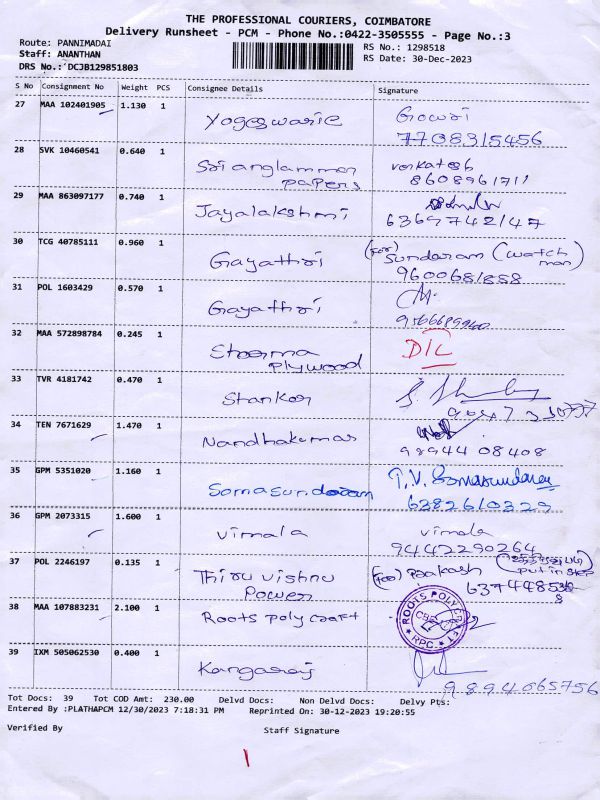 THE PROFESSIONAL COURIERS, COIMBATORE
Delivery Runsheet - PCM - Phone No.:0422-3505555 - Page No.:3
Route: PANNIMADAI
RS No.: 1298518
Staff: ANANTHAN
RS Date: 30-Dec-2023
DRS No.: DCJB129851803
S No Consignment No Weight PCS Consignee Details Signature
27 MAA 102401905 1.130 1 Yogeswarie Gowri
7708315456
28 SVK 10460541 0.640 1 Sri anglamman venkatesh
papers 8608961711
29 MAA 863097177 0.740 1 Jayalakshmi
6369742147
30 TCG 40785111 0.960 1 Gayathri (For) Sundaram (watch
man)
9600681858
31 POL 1603429 0.570 1 Gayathri
32 MAA 572898784 0.245 1 Sharma D/L
plywood
33 TVR 4181742 0.470 1 Stanker
34 TEN 7671629 1.470 1 Nandhakumar
98944 08408
35 GPM 5351020 1.160 1 Somasundaram T.V. Somasundaram
6382610329
36 GPM 2073315 1.600 1 vimala vimala
9442290264
37 POL 2246197 0.135 1 Thiru vishnu (For) Prakash
Power put in step
38 MAA 107883231 2.100 1 Roots polycraft ROOTS POLYCRAFT
CBE
RPC
39 IXM 505062530 0.400 1 Kangaraj
9894665756
Tot Docs: 39 Tot COD Amt: 230.00 Delvd Docs: Non Delvd Docs: Delvy Pts:
Entered By :PLATHAPCM 12/30/2023 7:18:31 PM Reprinted On: 30-12-2023 19:20:55
Verified By Staff Signature